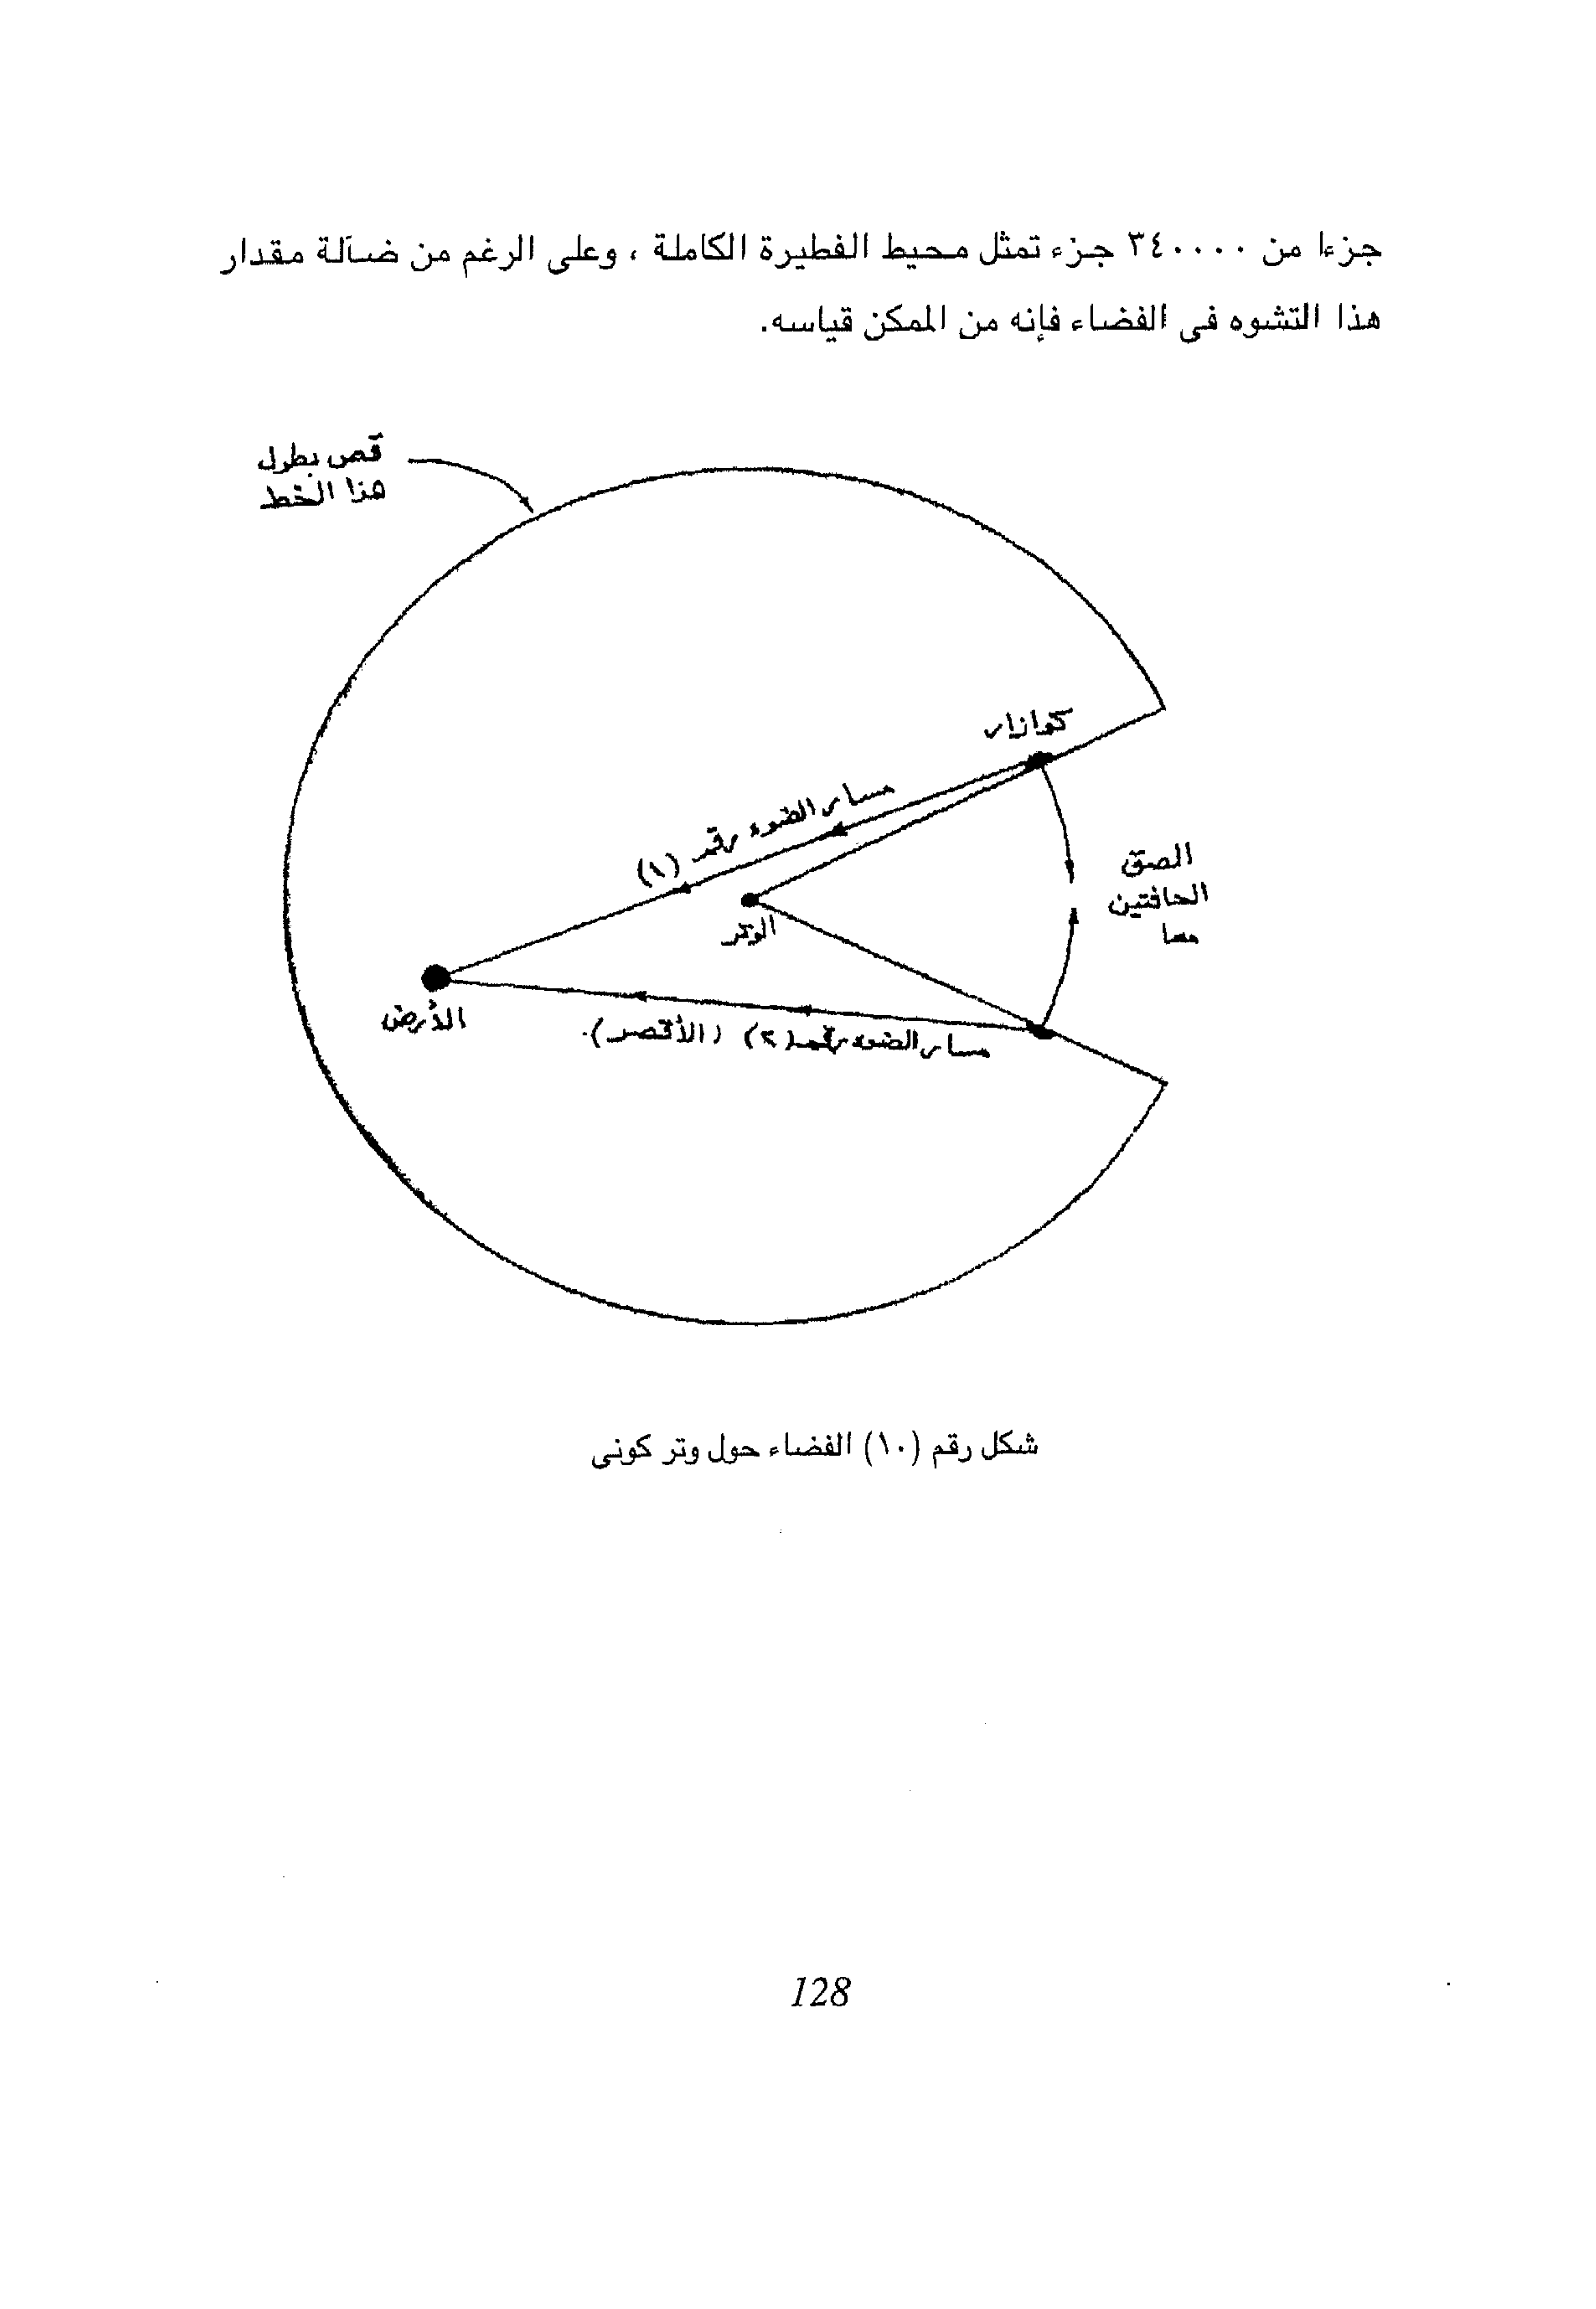 جزءا من ٣٤٠٠٠٠ جزء تمثل محيط الفطيرة الكاملة ، وعلى الرغم من ضآلة مقدار
هذا التشوه فى الفضاء فإنه من الممكن قياسه.
قص بطول
هذا الخط
كوازار
مسار الضوء رقم (١)
الصق
الحافتين
معا
الوتر
الأرض
مسار الضوء رقم (٢) (الأقصر).
شكل رقم (١٠) الفضاء حول وتر كونى
128